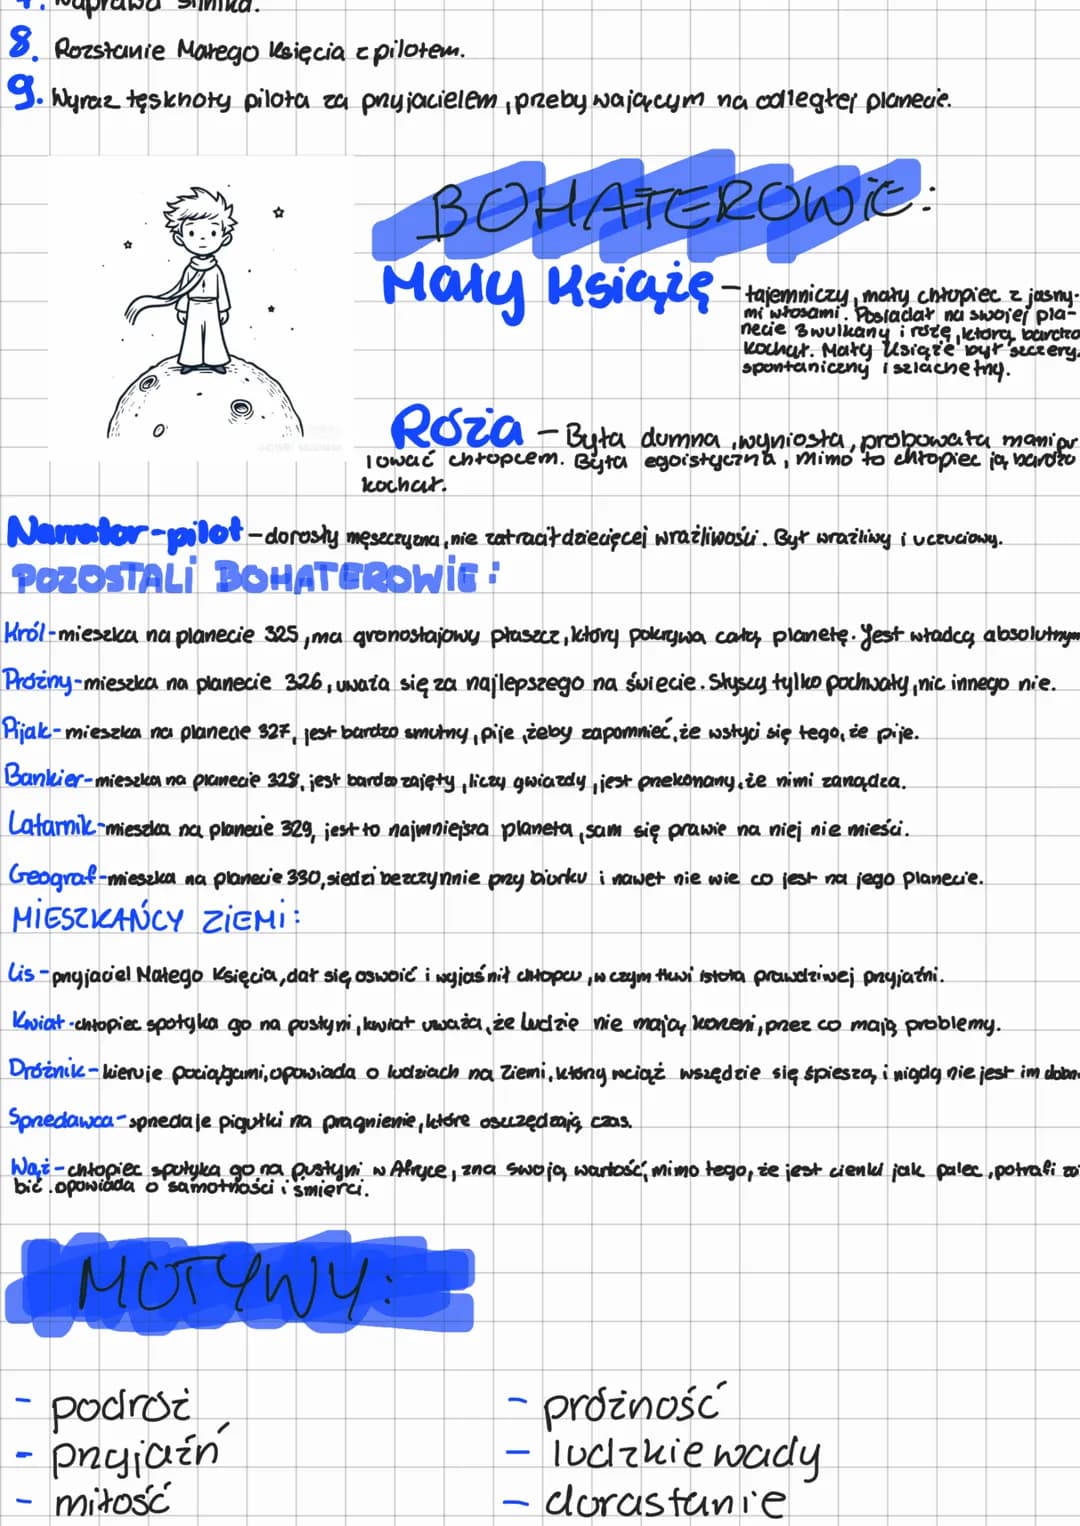 7. Naprawa silnika.
8. Rozstanie Małego Księcia z pilotem.
9. Wyraz tęsknoty pilota za przyjacielem, przebywającym na odległej planecie.
BOHATEROWiE:
Mały Książę - tajemniczy, mały chłopiec z jasny-
mi włosami. Posiadał na swojej pla-
necie 3 wulkany i różę, którą bardzo
kochał. Mały Książę był szczery,
spontaniczny i szlachetny.
Róża - Była dumna, wyniosła, próbowała manipu
lować chłopcem. Była egoistyczna, mimo to chłopiec ją bardzo
kochał.
Narrator-pilot - dorosły męszczyzna, nie zatracił dziecięcej wrażliwości. Był wrażliwy i uczuciowy.
POZOSTALi BOHATEROWiE:
Król - mieszka na planecie 325, ma gronostajowy płaszcz, który pokrywa całą planetę. Jest władcą absolutnym
Próżny - mieszka na planecie 326, uważa się za najlepszego na świecie. Słyszy tylko pochwały, nic innego nie.
Pijak - mieszka na planecie 327, jest bardzo smutny, pije, żeby zapomnieć, że wstyci się tego, że pije.
Bankier - mieszka na planecie 328, jest bardzo zajęty, liczy gwiazdy, jest przekonany, że nimi zarządza.
Latarnik - mieszka na planecie 329, jest to najmniejsza planeta, sam się prawie na niej nie mieści.
Geograf - mieszka na planecie 330, siedzi bezczynnie przy biurku i nawet nie wie co jest na jego planecie.
MiESZKAŃCY ZiEMi:
Lis - przyjaciel Małego Księcia, dał się oswoić i wyjaśnił chłopcu, w czym tkwi istota prawdziwej przyjaźni.
Kwiat - chłopiec spotyka go na pustyni, kwiat uważa, że ludzie nie mają korzeni, przez co mają problemy.
Dróżnik - kieruje pociągami, opowiada o ludziach na Ziemi, którzy wciąż wszędzie się śpieszą, i nigdy nie jest im dobrz
Sprzedawca - sprzedaje pigułki na pragnienie, które oszczędzają czas.
Wąż - chłopiec spotyka go na pustyni w Afryce, zna swoją wartość, mimo tego, że jest cienki jak palec, potrafi za
bić. opowiada o samotności i śmierci.
MOTYWY:
- podróż
- przyjaźń
- miłość
- próżność
- ludzkie wady
- dorastanie